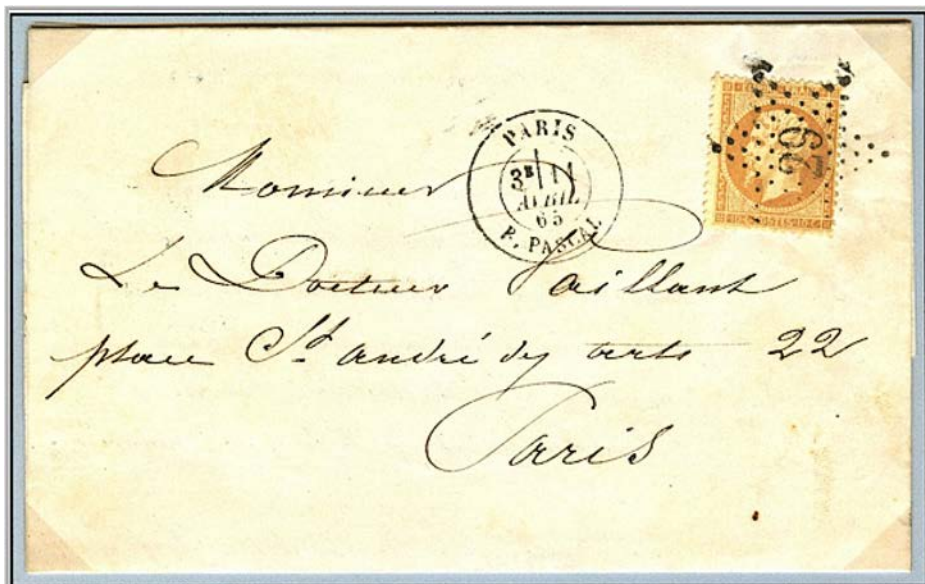 PARIS
3ᴱ 11
AVRIL
65
R. PASCAL
29
Monsieur
Le Docteur Vaillant
place St andré des arts 22
Paris